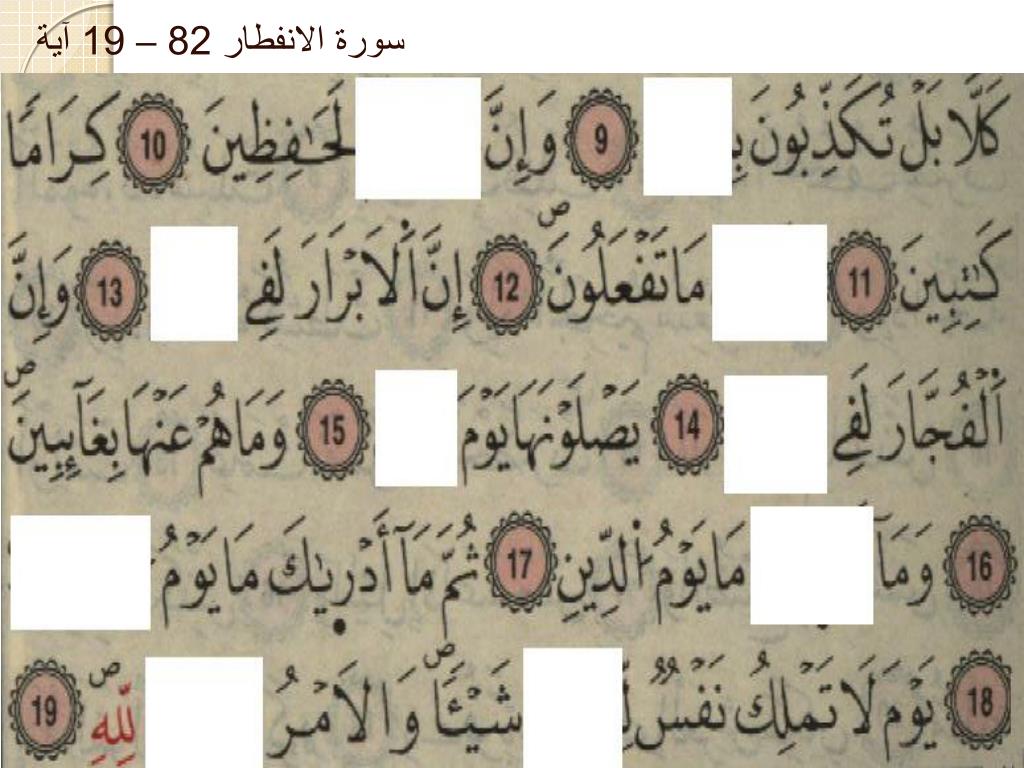 سورة الانفطار 82 – 19 آية
كَلَّا بَلْ تُكَذِّبُونَ بِ 9 وَإِنَّ لَحَٰفِظِينَ 10 كِرَامٗا
كَٰتِبِينَ 11 مَا تَفْعَلُونَۖ 12 إِنَّ اَ۬لَابْرَارَ لَفِے 13 وَإِنَّ
اَ۬لْفُجَّارَ لَفِے 14 يَصْلَوْنَهَا يَوْمَ 15 وَمَا هُمْ عَنْهَا بِغَآئِبِينَۖ
16 وَمَآ مَا يَوْمُ اُ۬لدِّينِ 17 ثُمَّ مَآ أَدْر۪يٰكَ مَا يَوْمُ
18 يَوْمَ لَا تَمْلِكُ نَفْسٞ لِّ شَيْـٔاٗۖ وَالَامْرُ لِلهِۖ 19